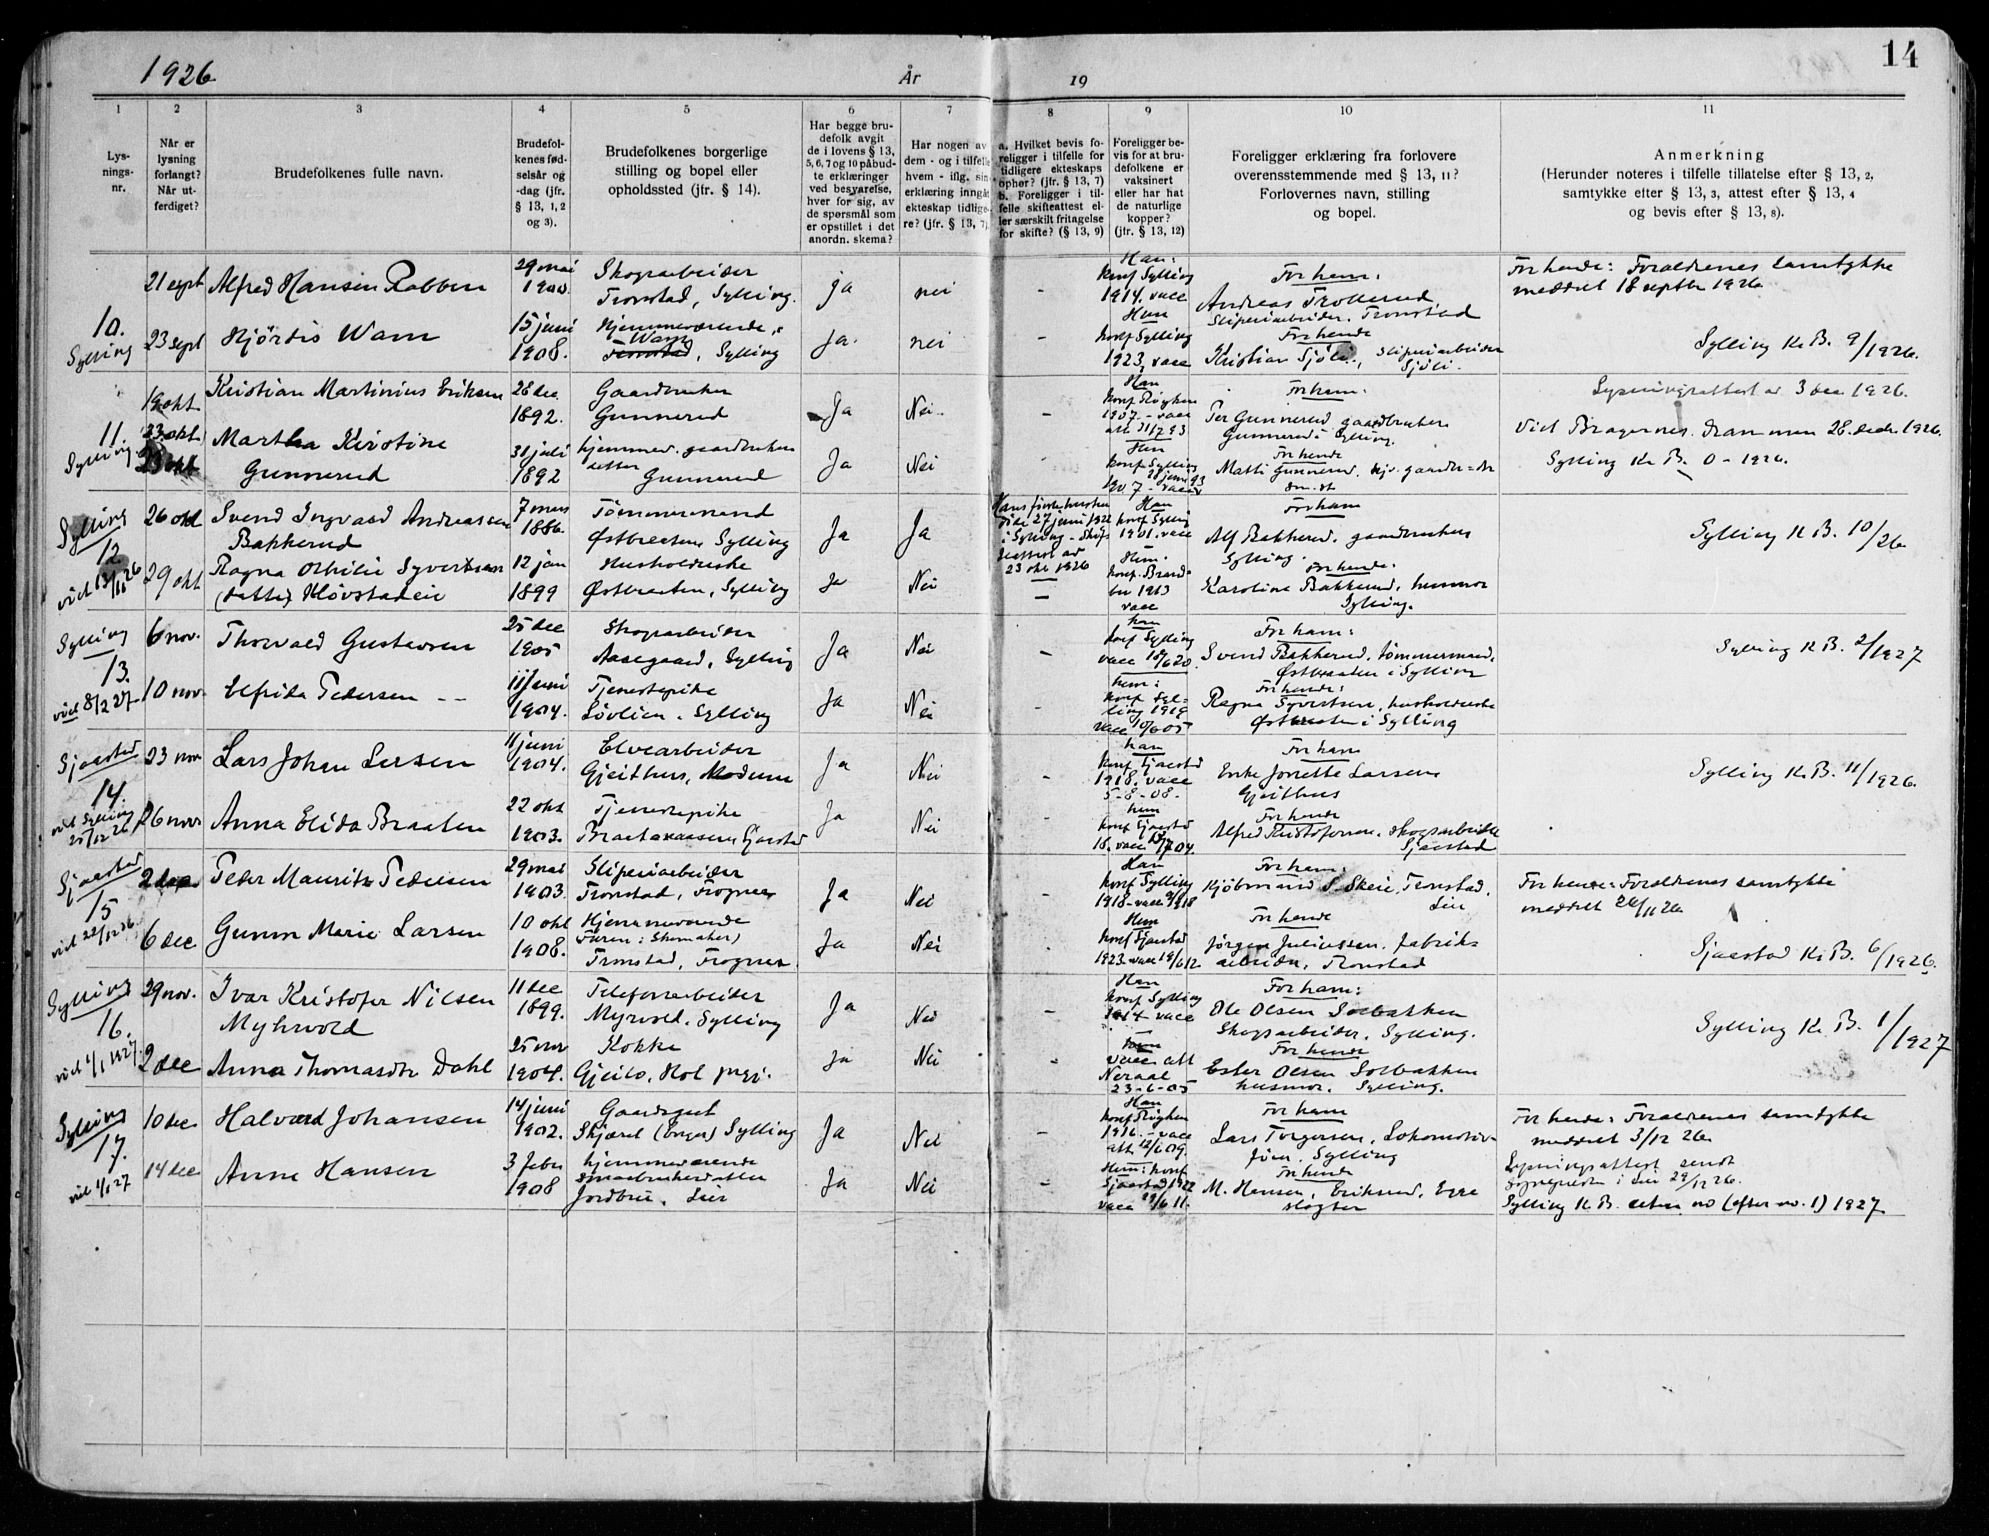 1926
År
19
14
1
2
3
4
5
6
7
8
9
10
11
Lys-
nings-
nr.
Når er
lysning
forlangt?
Når ut-
ferdiget?
Brudefolkenes fulle navn.
Brudefol-
kenes fød-
selsår og
-dag (jfr.
§ 13, 1, 2
og 3).
Brudefolkenes borgerlige
stilling og bopel eller
opholdssted (jfr. § 14).
Har begge bru-
defolk avgit
de i lovens § 13,
5, 6, 7 og 10 påbud-
te erklæringer
ved besvarelse,
hver for sig, av
de spørsmål som
er opstillet i det
anordn. skema?
Har nogen av
dem - og i tilfelle
hvem - iflg. sin
erklæring inngåt
ekteskap tidlige-
re? (jfr. § 13, 7)
a. Hvilket bevis fo-
religger i tilfelle for
tidligere ekteskaps
ophør? (jfr. § 13, 7)
b. Foreligger i til-
felle skifteattest el-
ler særskilt fritagelse
for skifte? (§ 13, 9)
Foreligger be-
vis for at bru-
defolkene er
vaksinert
eller har hat
de naturlige
kopper?
(jfr. § 13, 12)
Foreligger erklæring fra forlovere
overensstemmende med § 13, 11?
Forlovernes navn, stilling
og bopel.
Anmerkning
(Herunder noteres i tilfelle tillatelse efter § 13, 2,
samtykke efter § 13, 3, attest efter § 13, 4
og bevis efter § 13, 8).
10.
Sylling
21 sept
Alfred Hansen Rabben
29 mai
1900.
Skogarbeider
Tronstad, Sylling.
ja
nei
-
Han:
konf Sylling
1914. vacc
For ham:
Andreas Trollerud,
Sliperiarbeider. Tronstad
For hende: Forældrenes samtykke
meddelt 18 septbr 1926
23 sept
Hjørdis Wam
15 juni
1908.
Hjemmeværende,
Wam
Tronstad, Sylling
Ja.
nei
-
Hun
konf Sylling
1923, vacc
For hende
Kristian Sjøli, Sliperiarbeider
Sjøli.
Sylling K. B. 9/1926.
11.
Sylling
19 okt
23 okt
Kristian Martinius Eriksen
28 dec
1892.
Gaardbruker
Gunnerud
Ja
Nei
-
Han
konf Røyken
1907. - vacc
att 21/7 93
For ham:
Per Gunnerud gaardbruker
Gunnerud i Sylling.
Lysningsattest av 3 dec 1926.
Viet Bragernes. Drammen 28. decbr. 1926.
Martha Kirstine
Gunnerud
31 juli
1892
hjemmev. gaardbruker
datter
Gunnerud
Ja
Nei
-
Hun
konf Sylling
1907 - vacc
For hende
Sylling K. B. 0 - 1926.
Sylling
12
viet 13/11 26
26 okt
Svend Ingvald Andreassen
Bakkerud
7 mars
1886.
Tømmermand
Østbraaten, Sylling
Ja
Ja
Hans første hustru
døde 27 juni 1922
i Sylling - Skifte
attest av
23 okt 1926
Han
konf Sylling
1901. vacc
For ham
Alf Bakkerud, gaardbruker
Sylling.
Sylling K. B. 10/26
29 okt
Ragna Othilie Syvertsen
(datter) Kløvstadeie
12 jan
1899
Husholderske
Østbraaten, Sylling
Ja
Nei
-
Hun.
konf. Brand-
bu 1913
vacc
For hende.
Karoline Bakkerud, husmor
Sylling.
Sylling
13.
viet 8/2 27
6 nov.
Thorvald Gustavsen
25 dec
1905
Skogarbeider
Aasegaard, Sylling
Ja
Nei
-
han
konf Sylling
vacc 18/6 20
For ham:
Svend Bakkerud, tømmermand,
Østbraaten i Sylling
Sylling K. B. 2/1927
10 nov.
Elfrida Pedersen - -
11 Juni
1904.
Tjenestepike
Løvlien, Sylling
Ja
Nei
-
hun:
konf Syl-
ling 1919
vacc 10/6 05
For hende:
Ragna Syvertsen, husholderske
Østbraaten i Sylling
Sjaastad
14.
viet Sylling
25/12 26
23 nov
Lars Johan Larsen
11 juni
1904.
Elvearbeider
Gjeithus, Modum
Ja
Nei
-
han
konf Sjaastad
1918. vacc
5-8-08.
For ham
Enke Jonette Larsen
Gjeithus
Sylling K. B. 11/1926.
26 nov
Anna Elida Braaten
22 okt
1903.
Tjenestepike
Braataasen, Sjaastad
Ja
Nei
-
hun
konf Sjaastad
18. vacc 13/7 04.
For hende
Alfred Kristofersen. Skogsarbeider
Sjaastad
Sjaastad
15
viet 22/12 26
2 dec
Peder Mauritz Pedersen
29 mai
1903.
Sliperiarbeider
Tronstad, Frogner
Ja
Nei
-
Han
konf Sylling
1918 - vacc 9/1918
For ham:
Kjøbmand S. Skeie, Tronstad,
Lier
For hende: Forældrenes samtykke
meddelt 26/11 26
6 dec
Gunvor Marie Larsen
10 okt
1908.
Hjemmeværende
(Faren: Skomaker)
Tronstad, Frogner.
Ja
Nei
-
Hun
konf Sjaastad
1923. vacc 19/6 12
For hende
Jørgen Juliussen. fabrik-
arbeider, Tronstad
Sjaastad K. B. 6/1926.
Sylling
16.
viet 1/1 1927.
29 nov.
Ivar Kristofer Nilsen
Myhrvold
11 dec
1899.
Telefonarbeider
Myrvold. Sylling
Ja
Nei
-
Han
konf Sylling
1914 vacc
For ham:
Ole Olsen Solbakken
Skogsarbeider, Sylling.
Sylling K. B. 1/1927
2 dec
Anna Thomasdtr Dahl
25 nov
1904.
Kokke
Gjeilo, Hol pgj.
Ja
Nei
-
vacc att
Neraal
23-6-05
For hende
Ester Olsen Solbakken
husmor. Sylling.
Sylling
17.
viet 1/1 27
10 dec
Halvard Johansen
14 juni
1902.
Gaardsgut
Skjæret (Enger) Sylling
Ja
Nei
-
Han
konf Røyken
1916. - vacc
att 12/6 09.
For ham
Lars Torgersen, Lokomotiv-
Jøen, Sylling
For hende: Forældrenes samtykke
meddelt 3/12 26
14 dec
Anne Hansen
3 febr
1908
hjemmeværende
smaabrukerdatter
Jordbru, Lier
Ja
Nei
-
Hun: konf
Sjaastad 1922
vacc 29/6 11.
For hende
M. Hansen, Eriksrud, Egge
slagter
Lysningsattest sendt
sogneprest i Lier 29/12 26.
Sylling K. B. uten no (efter no. 1) 1927